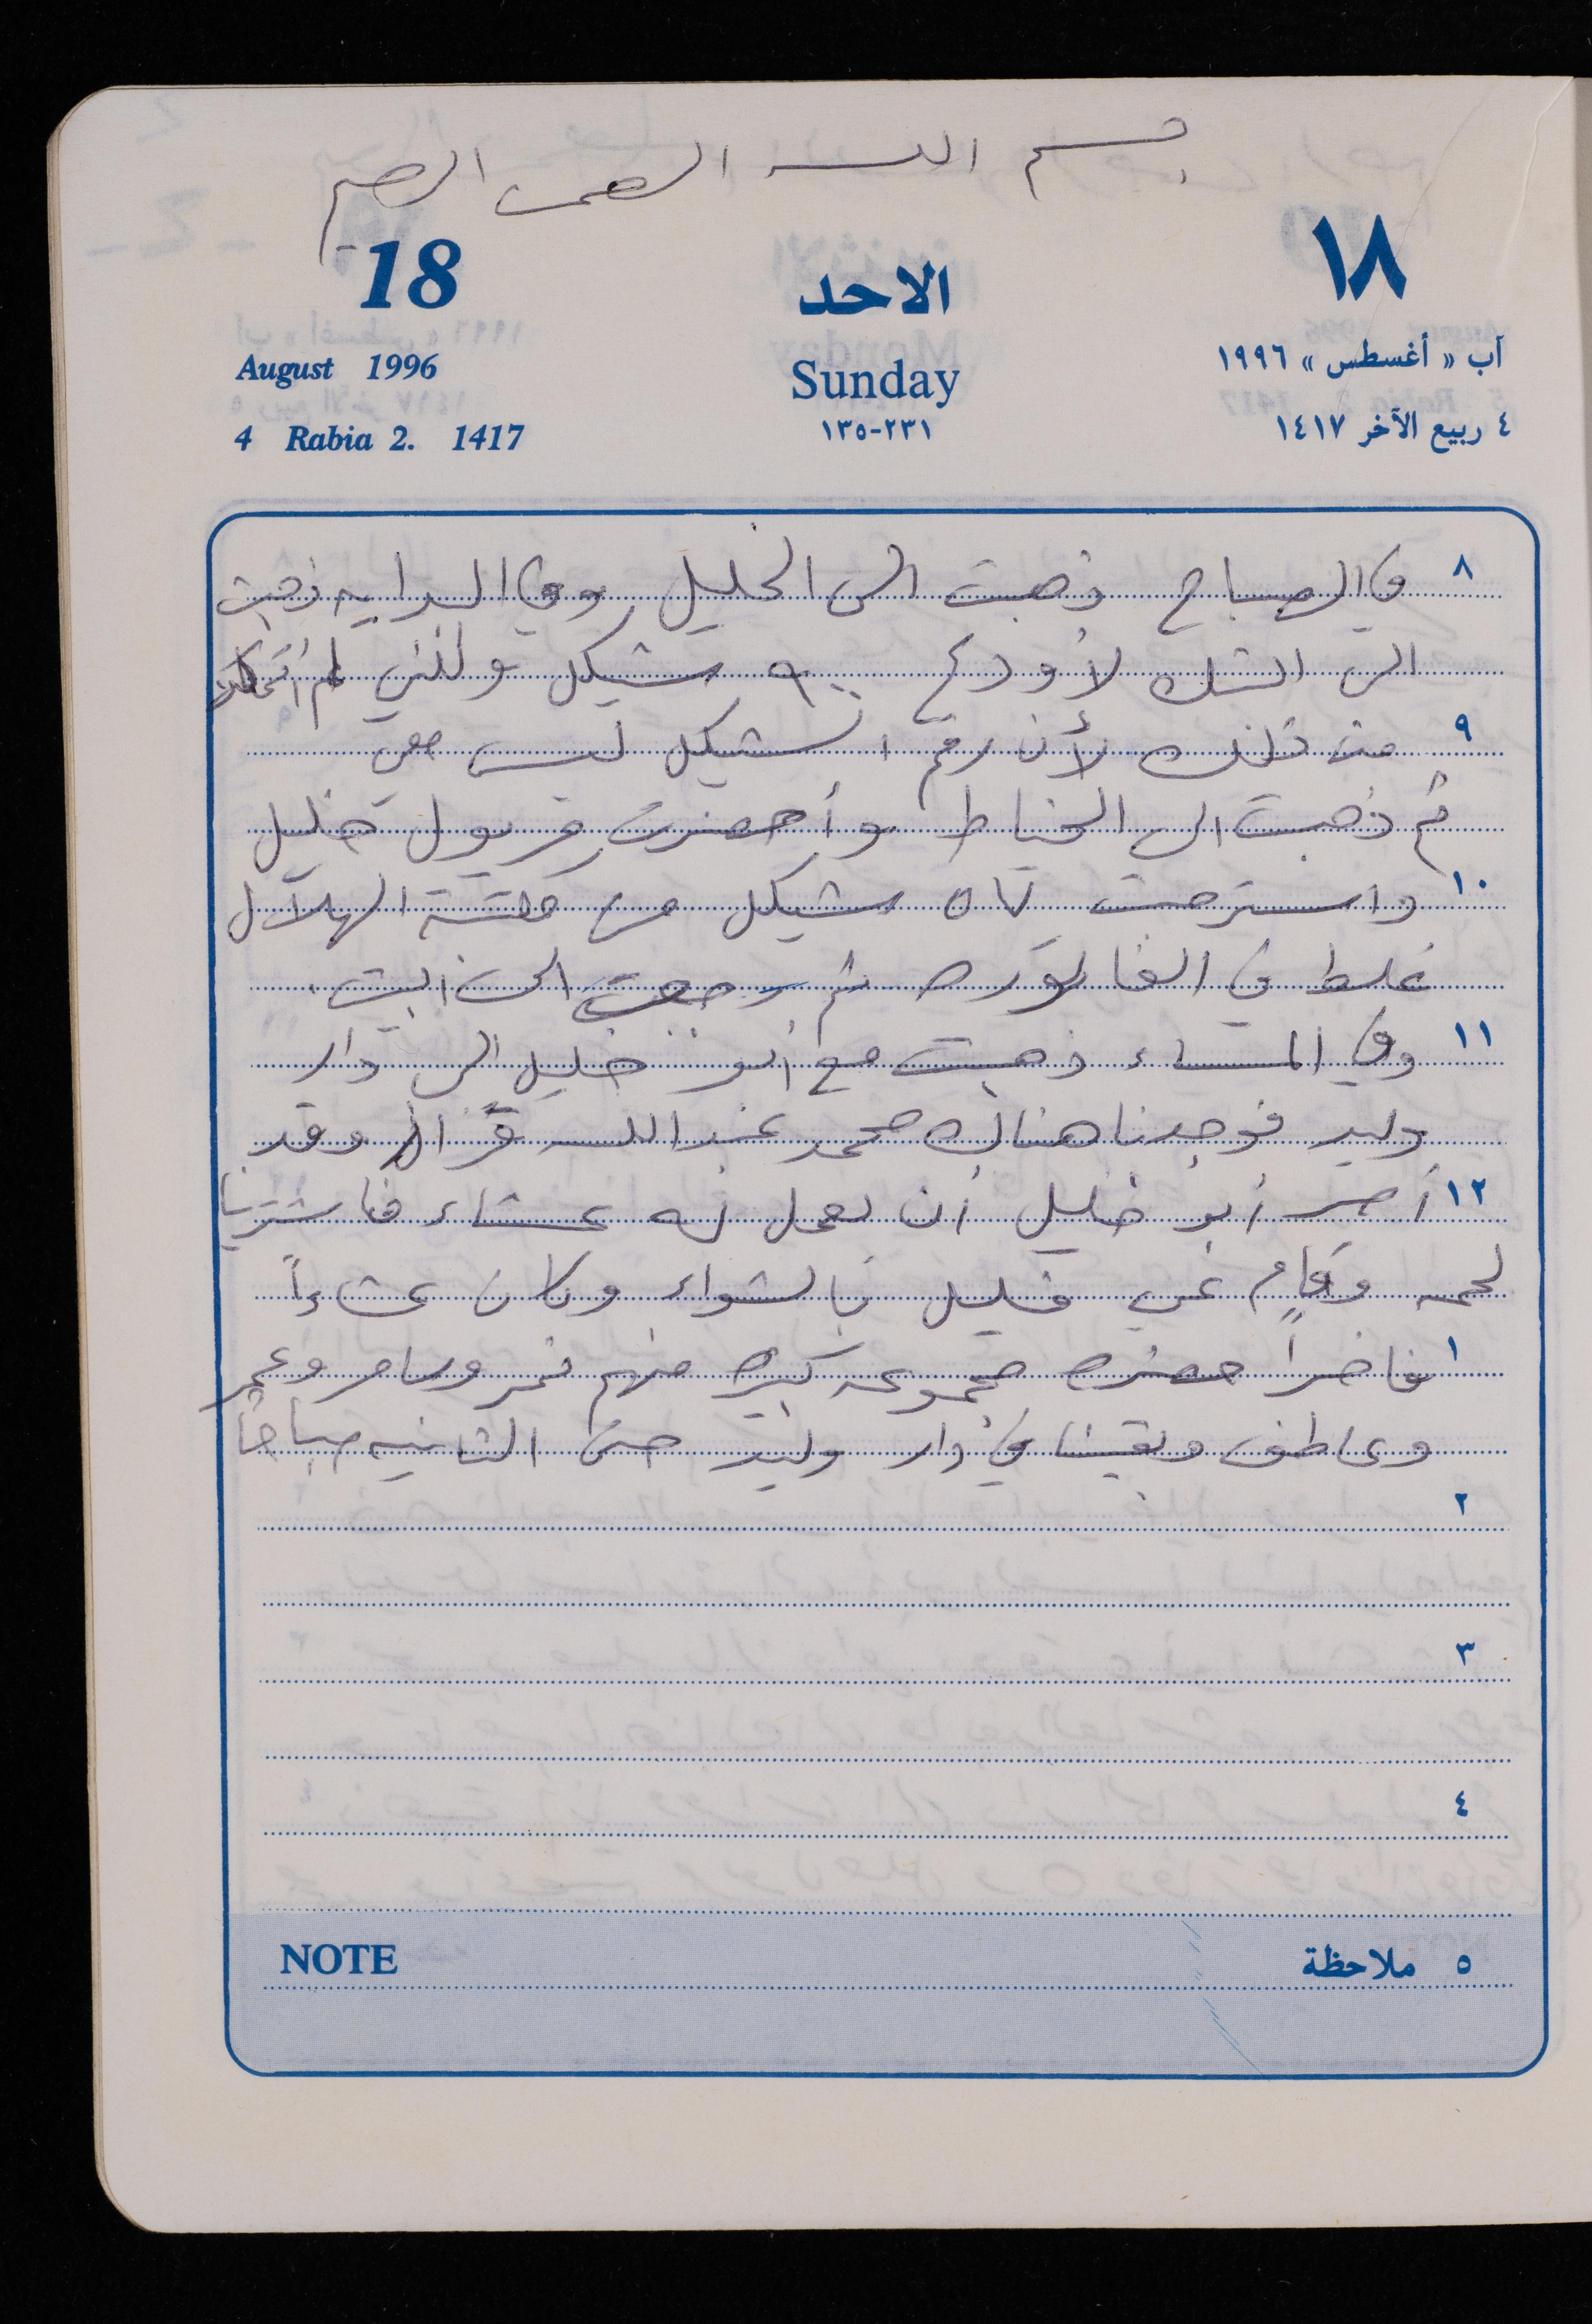 بسم الله الرحمن الرحيم
18 الاحد ١٨
August 1996 Sunday آب « أغسطس » ١٩٩٦
4 Rabia 2. 1417 ٢٣١-١٣٥ ٤ ربيع الآخر ١٤١٧
٨ في الصباح ذهبت الى الخليل وفي البدايه ذهبت
الى البنك لأودع ٩٠٠ شيكل ولكني لم أتمكن
٩ من ذلك لأن رقم الشيكل ليس معي
ثم ذهبت الى الخياط وأحضرت مريول خليل
١٠ واسترجعت شيكل من مكتبة الهلال
غلط في الفاتوره ثم رجعت الى البيت.
١١ وفي المساء ذهبت مع أبو خليل الى دار
وليد فوجدنا هناك محمد عبد الله وقد
١٢ أصر أبو خليل أن نعمل له عشاء فاشترينا
لحمه وقام خليل بالشواء وكان عشاءاً
١ فاخراً حضره مجموعه كبيره منهم نمر وسامر وعمر
وعاطف وبقينا في دار وليد حتى الثانيه صباحاً
٢
٣
٤
NOTE ٥ ملاحظة